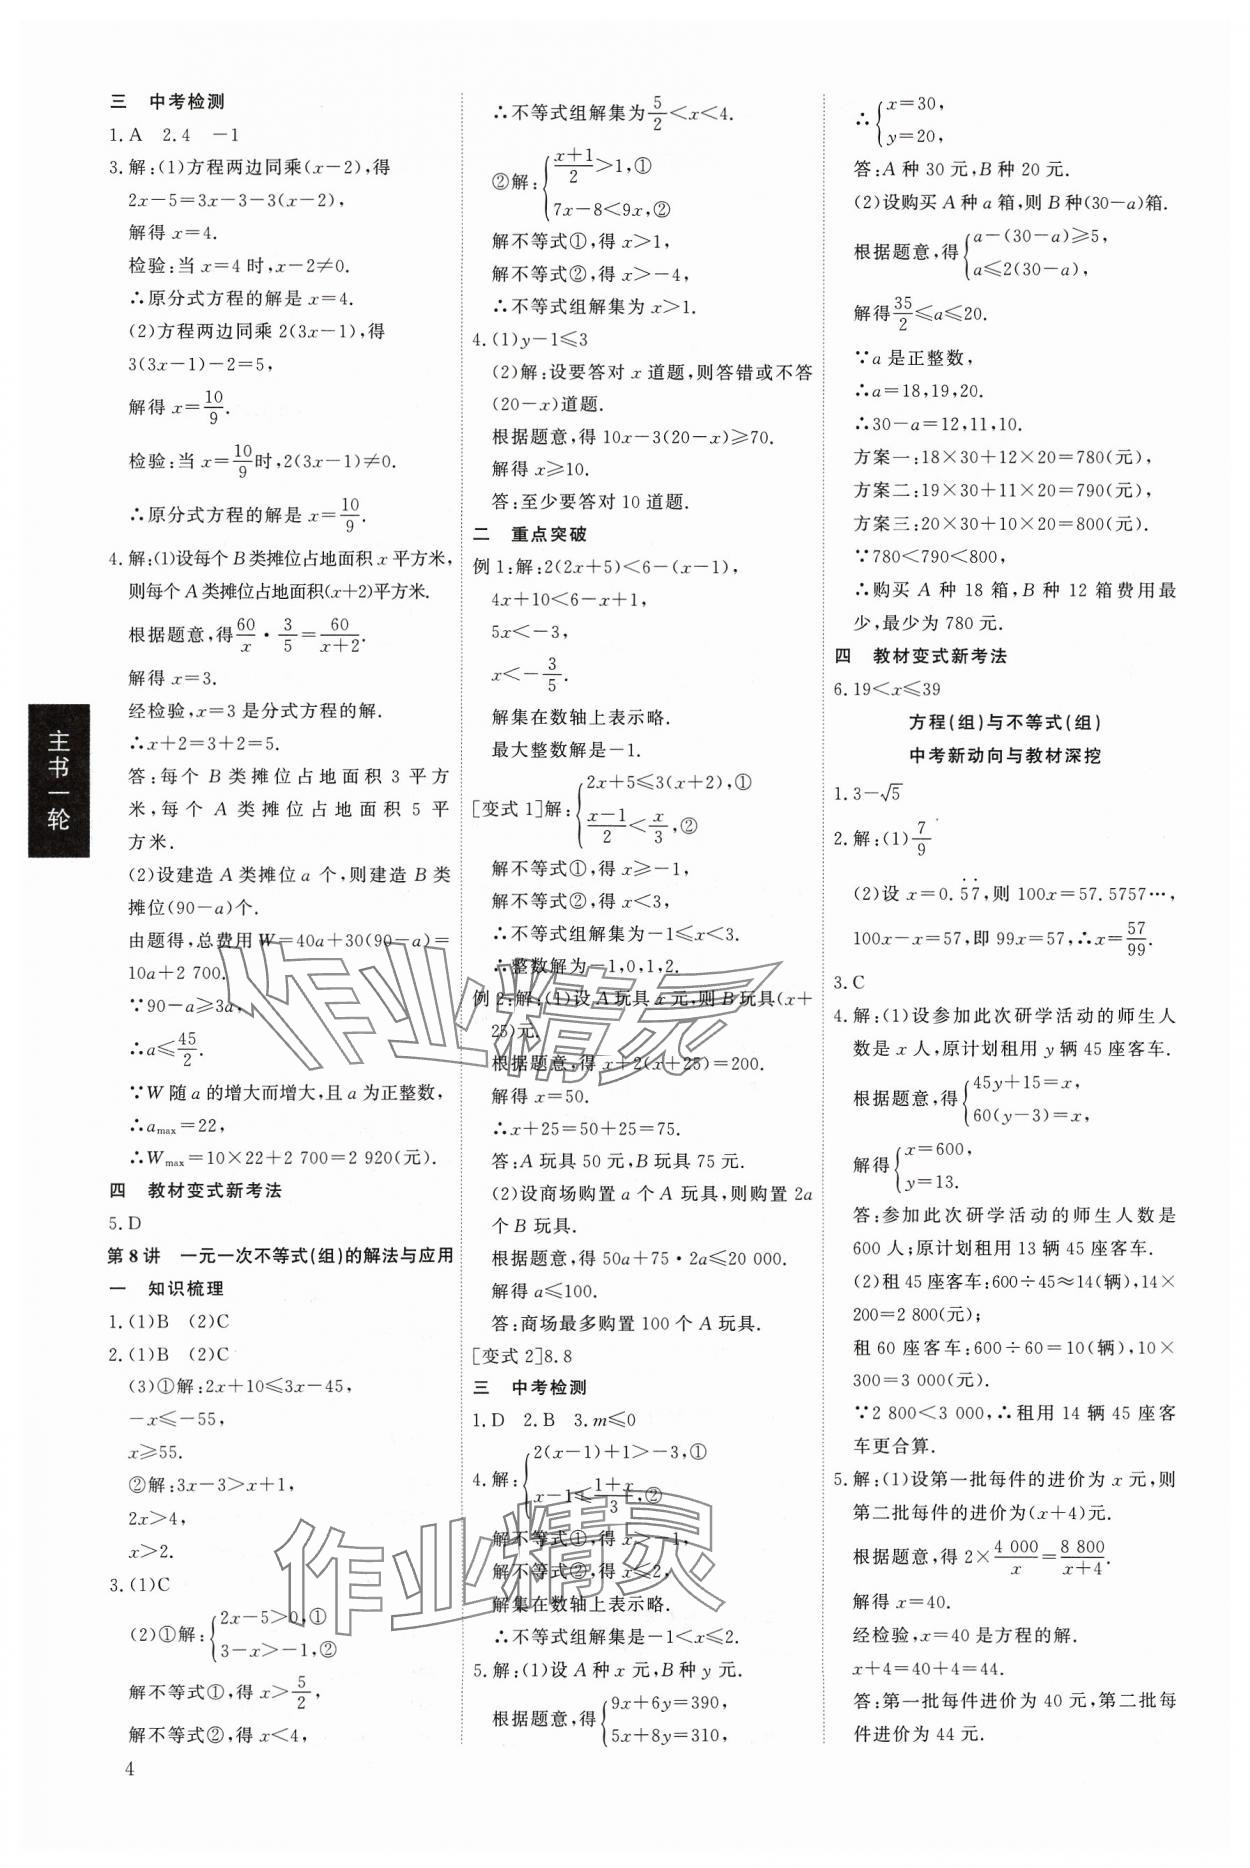 三 中考检测
1.A 2.4 －1
3.解:(1)方程两边同乘(x－2),得
2x－5＝3x－3－3(x－2),
解得 x＝4.
检验:当 x＝4 时,x－2≠0.
∴原分式方程的解是 x＝4.
(2)方程两边同乘 2(3x－1),得
3(3x－1)－2＝5,
解得 x＝10/9.
检验:当 x＝10/9时,2(3x－1)≠0.
∴原分式方程的解是 x＝10/9.
4.解:(1)设每个 B 类摊位占地面积 x 平方米,
则每个 A 类摊位占地面积(x＋2)平方米.
根据题意,得60/x·3/5＝60/(x＋2).
解得 x＝3.
经检验,x＝3 是分式方程的解.
∴x＋2＝3＋2＝5.
答:每个 B 类摊位占地面积 3 平方
米,每个 A 类摊位占地面积 5 平
方米.
(2)设建造 A 类摊位 a 个,则建造 B 类
摊位(90－a)个.
由题得,总费用 W＝40a＋30(90－a)＝
10a＋2 700.
∵90－a≥3a,
∴a≤45/2.
∵W 随 a 的增大而增大,且 a 为正整数,
∴a max＝22,
∴W max＝10×22＋2 700＝2 920(元).
四 教材变式新考法
5.D
第 8 讲 一元一次不等式(组)的解法与应用
一 知识梳理
1.(1)B (2)C
2.(1)B (2)C
(3)①解:2x＋10≤3x－45,
－x≤－55,
x≥55.
②解:3x－3＞x＋1,
2x＞4,
x＞2.
3.(1)C
(2)①解:{2x－5＞0,①
3－x＞－1,②
解不等式①,得 x＞5/2,
解不等式②,得 x＜4,
∴不等式组解集为5/2＜x＜4.
②解:{(x＋1)/2＞1,①
7x－8＜9x,②
解不等式①,得 x＞1,
解不等式②,得 x＞－4,
∴不等式组解集为 x＞1.
4.(1)y－1≤3
(2)解:设要答对 x 道题,则答错或不答
(20－x)道题.
根据题意,得 10x－3(20－x)≥70.
解得 x≥10.
答:至少要答对 10 道题.
二 重点突破
例 1:解:2(2x＋5)＜6－(x－1),
4x＋10＜6－x＋1,
5x＜－3,
x＜－3/5.
解集在数轴上表示略.
最大整数解是－1.
[变式 1]解:{2x＋5≤3(x＋2),①
(x－1)/2＜x/3,②
解不等式①,得 x≥－1,
解不等式②,得 x＜3,
∴不等式组解集为－1≤x＜3.
∴整数解为－1,0,1,2.
例 2:解:(1)设 A 玩具 x 元,则 B 玩具(x＋
25)元.
根据题意,得 x＋2(x＋25)＝200.
解得 x＝50.
∴x＋25＝50＋25＝75.
答:A 玩具 50 元,B 玩具 75 元.
(2)设商场购置 a 个 A 玩具,则购置 2a
个 B 玩具.
根据题意,得 50a＋75·2a≤20 000.
解得 a≤100.
答:商场最多购置 100 个 A 玩具.
[变式 2]8.8
三 中考检测
1.D 2.B 3.m≤0
4.解:{2(x－1)＋1＞－3,①
x－1≤(1＋x)/3,②
解不等式①,得 x＞－1,
解不等式②,得 x≤2,
解集在数轴上表示略.
∴不等式组解集是－1＜x≤2.
5.解:(1)设 A 种 x 元,B 种 y 元.
根据题意,得{9x＋6y＝390,
5x＋8y＝310,
∴{x＝30,
y＝20,
答:A 种 30 元,B 种 20 元.
(2)设购买 A 种 a 箱,则 B 种(30－a)箱.
根据题意,得{a－(30－a)≥5,
a≤2(30－a),
解得35/2≤a≤20.
∵a 是正整数,
∴a＝18,19,20.
∴30－a＝12,11,10.
方案一:18×30＋12×20＝780(元),
方案二:19×30＋11×20＝790(元),
方案三:20×30＋10×20＝800(元).
∵780＜790＜800,
∴购买 A 种 18 箱,B 种 12 箱费用最
少,最少为 780 元.
四 教材变式新考法
6.19＜x≤39
方程(组)与不等式(组)
中考新动向与教材深挖
1.3－√5
2.解:(1)7/9
(2)设 x＝0.5̇7̇,则 100x＝57.5757…,
100x－x＝57,即 99x＝57,∴x＝57/99.
3.C
4.解:(1)设参加此次研学活动的师生人
数是 x 人,原计划租用 y 辆 45 座客车.
根据题意,得{45y＋15＝x,
60(y－3)＝x,
解得{x＝600,
y＝13.
答:参加此次研学活动的师生人数是
600 人;原计划租用 13 辆 45 座客车.
(2)租 45 座客车:600÷45≈14(辆),14×
200＝2 800(元);
租 60 座客车:600÷60＝10(辆),10×
300＝3 000(元).
∵2 800＜3 000,∴租用 14 辆 45 座客
车更合算.
5.解:(1)设第一批每件的进价为 x 元,则
第二批每件的进价为(x＋4)元.
根据题意,得 2×4 000/x＝8 800/(x＋4).
解得 x＝40.
经检验,x＝40 是方程的解.
x＋4＝40＋4＝44.
答:第一批每件进价为 40 元,第二批每
件进价为 44 元.
主书一轮
4
作业精灵
作业精灵